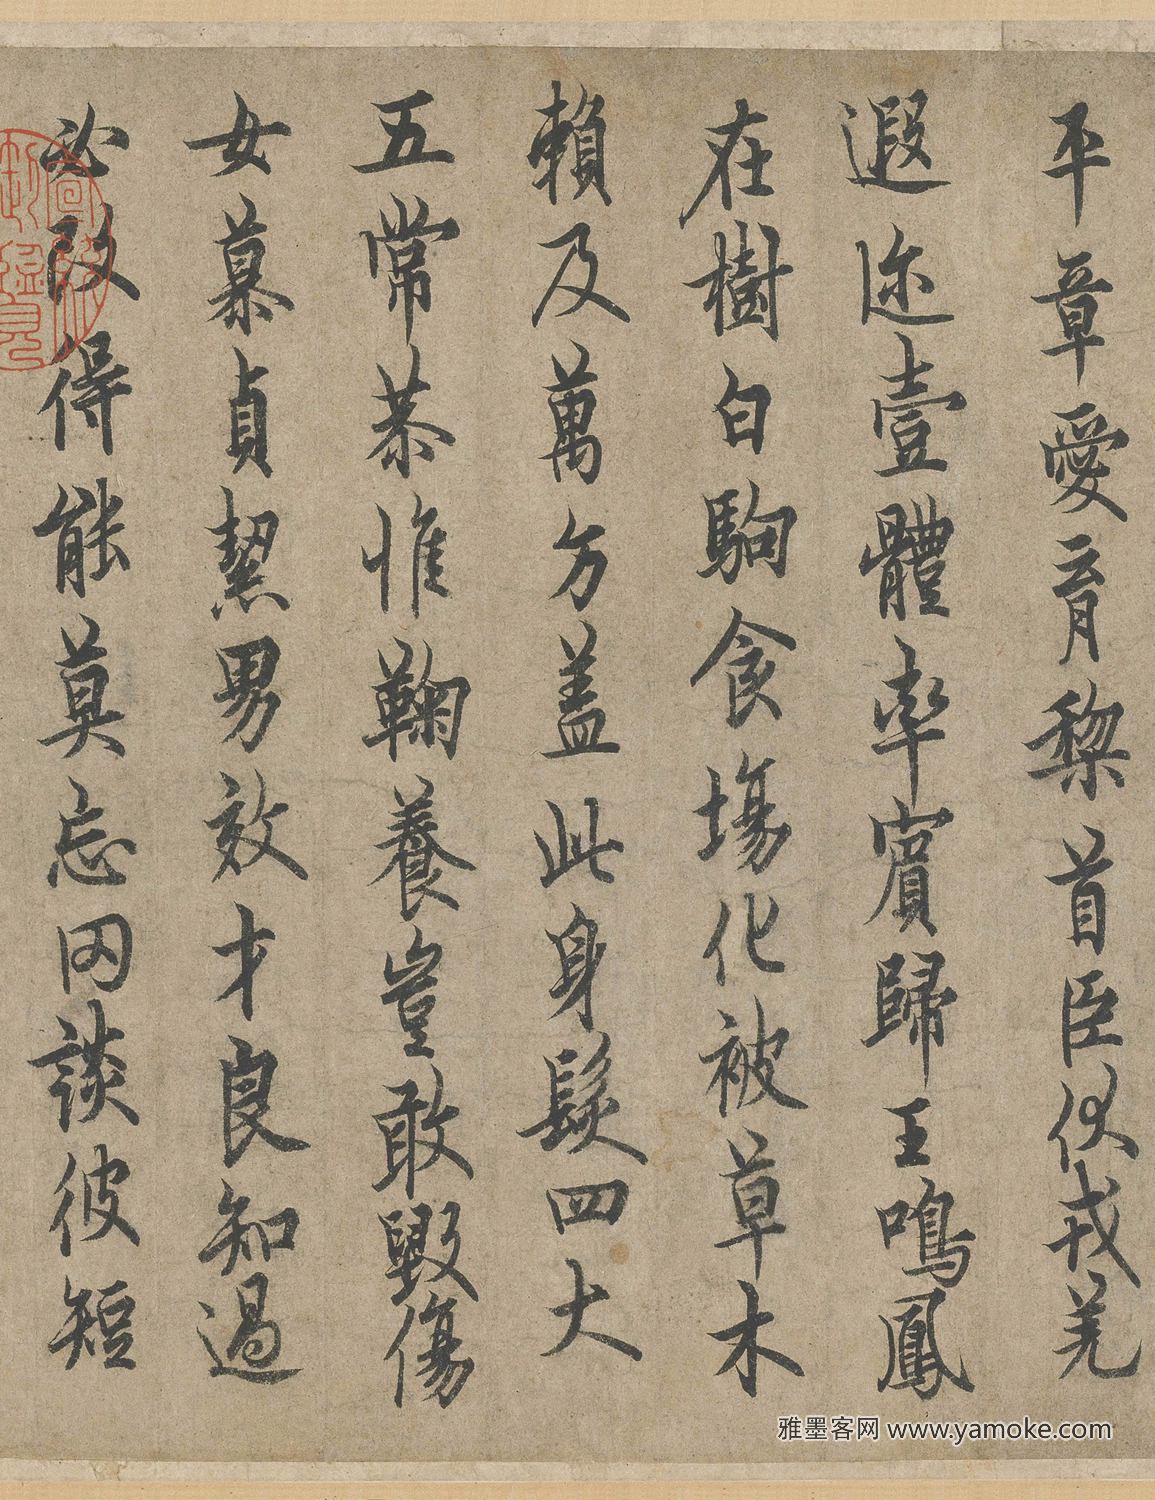 平章愛育黎首臣伏戎羌
遐迩壹體率賓歸王鳴鳳
在樹白駒食場化被草木
賴及萬方蓋此身髮四大
五常恭惟鞠養豈敢毀傷
女慕貞絜男效才良知過
必改得能莫忘罔談彼短
雅墨客网 www.yamoke.com